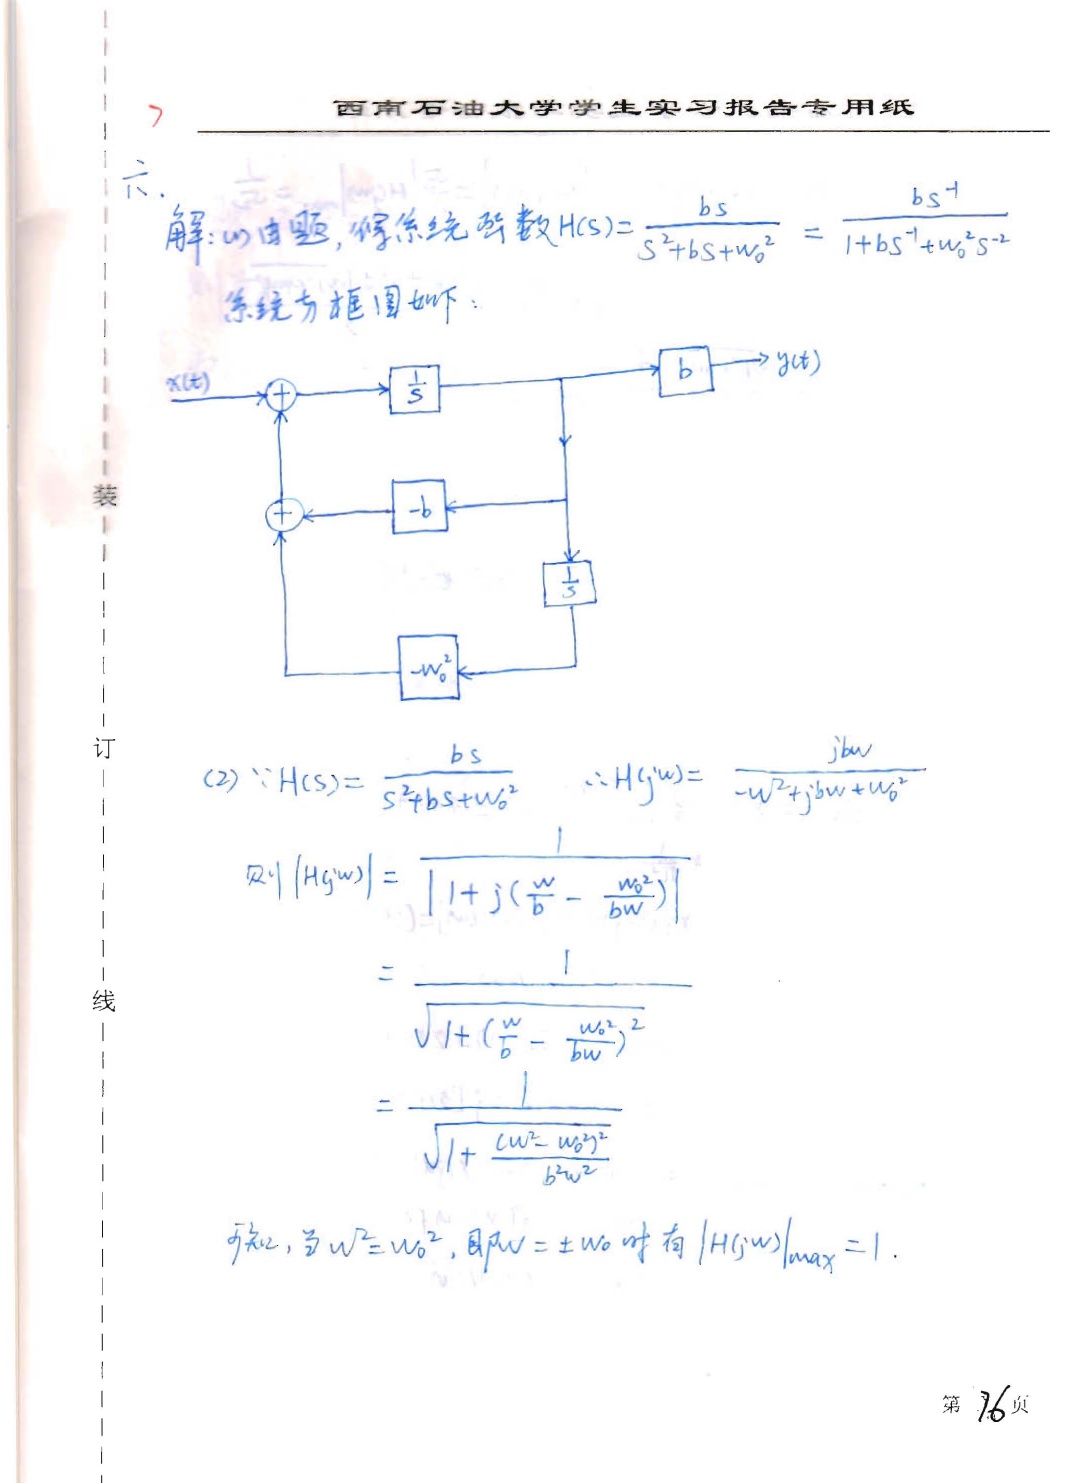 西南石油大学学生实习报告专用纸
六、
解:(1)由题,得系统函数H(s)= bs/(s²+bs+w₀²) = bs⁻¹/(1+bs⁻¹+w₀²s⁻²)
系统方框图如下:
x(t) + 1/s b y(t)
+ -b
1/s
-w₀²
(2) ∵H(s)= bs/(s²+bs+w₀²) ∴H(jw)= jbw/(-w²+jbw+w₀²)
则|H(jw)|= 1/|1+j(w/b - w₀²/bw)|
= 1/√(1+(w/b - w₀²/bw)²)
= 1/√(1+(w²-w₀²)²/b²w²)
可知,当w²=w₀²,即w=±w₀时有|H(jw)|max=1.
装
订
线
第 76 页